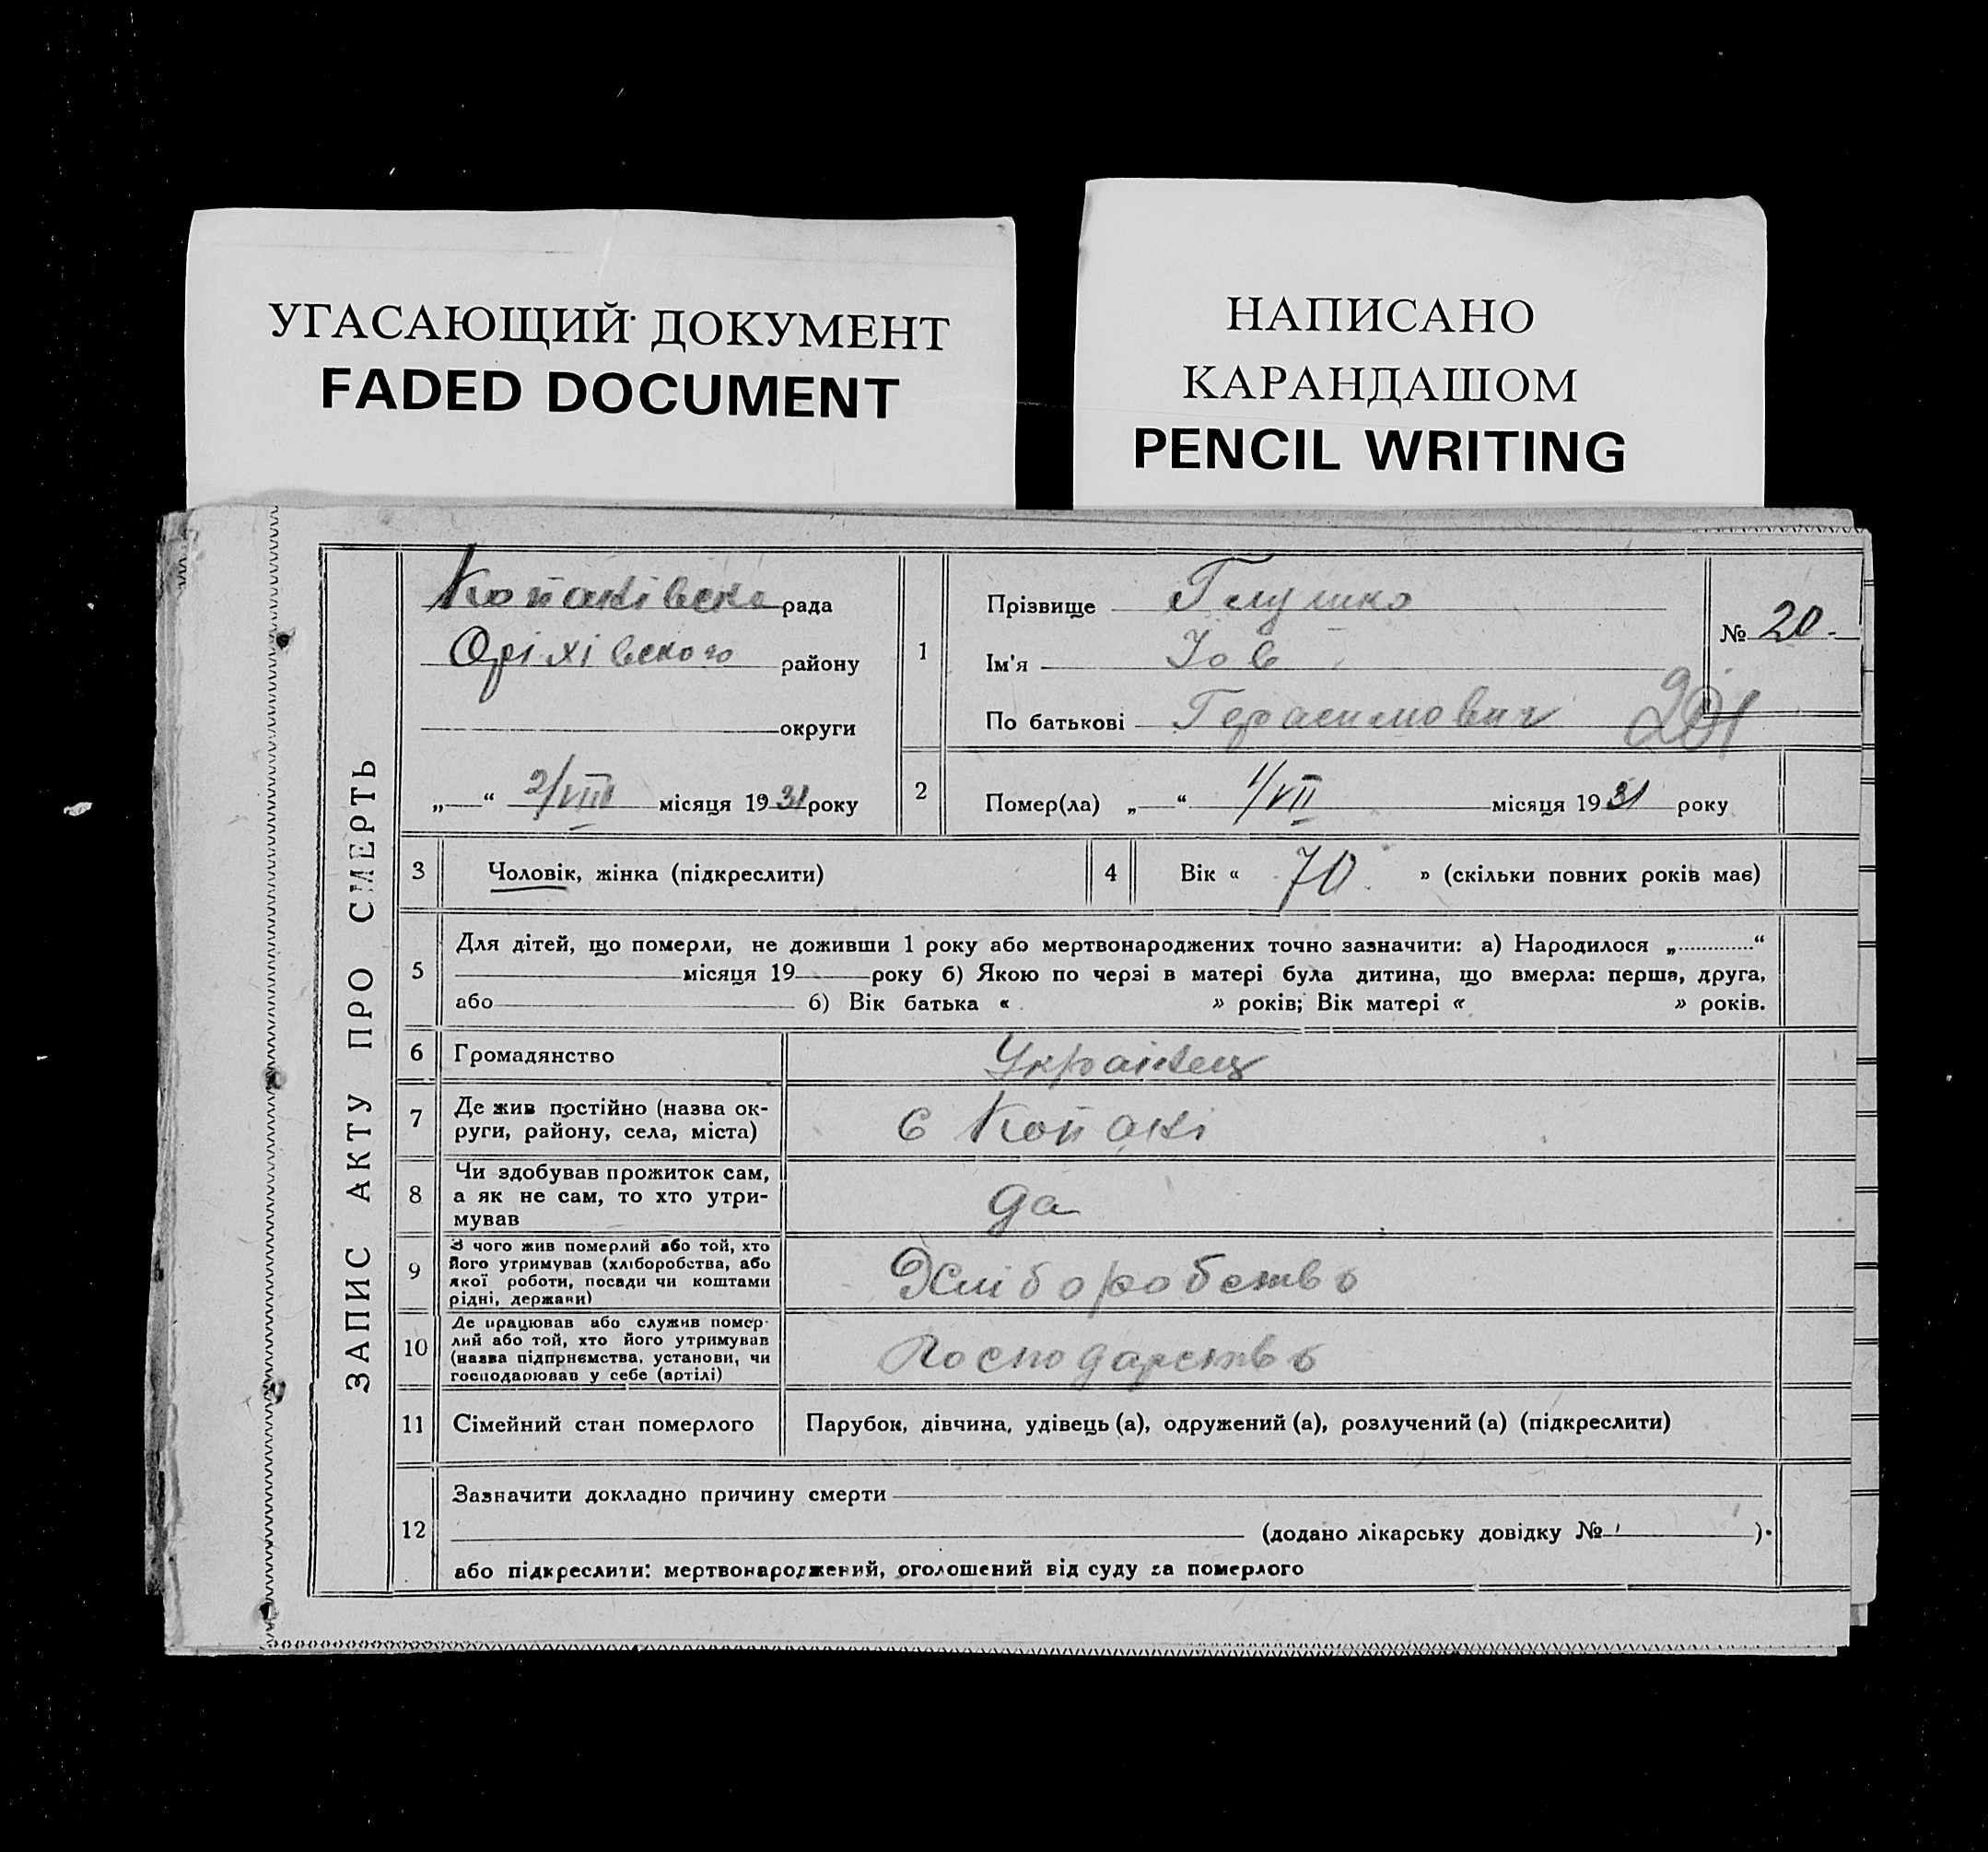 УГАСАЮЩИЙ ДОКУМЕНТ
FADED DOCUMENT
НАПИСАНО
КАРАНДАШОМ
PENCIL WRITING
ЗАПИС АКТУ ПРО СМЕРТЬ
Копанівська рада
Оріхівського району
округи
„ “ 2/VIII місяця 1931 року
1
Прізвище Глушко
Ім'я Іов
По батькові Герасимович
№ 20
201
2
Помер(ла) „ “ 1/VII місяця 1931 року
3 Чоловік, жінка (підкреслити)
4 Вік « 70 » (скільки повних років має)
5
Для дітей, що померли, не доживши 1 року або мертвонароджених точно зазначити: а) Народилося „ “
місяця 19 року б) Якою по черзі в матері була дитина, що вмерла: перша, друга,
або б) Вік батька « » років; Вік матері « » років.
6 Громадянство Українец
7
Де жив постійно (назва ок-
руги, району, села, міста)
с Копані
8
Чи здобував прожиток сам,
а як не сам, то хто утри-
мував
да
9
З чого жив померлий або той, хто
його утримував (хліборобства, або
якої роботи, посади чи коштами
рідні, держави)
Хліборобство
10
Де працював або служив помер-
лий або той, хто його утримував
(назва підприємства, установи, чи
господарював у себе (артілі)
Господарство
11 Сімейний стан померлого Парубок, дівчина, удівець (а), одружений (а), розлучений (а) (підкреслити)
12
Зазначити докладно причину смерти
(додано лікарську довідку № ).
або підкреслити: мертвонароджений, оголошений від суду за померлого